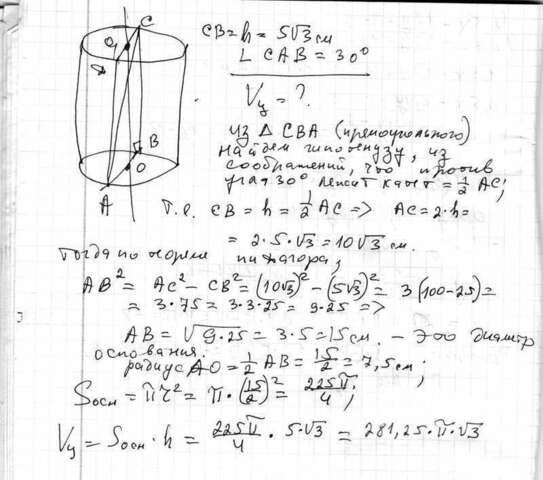 C
O₁
B
O
A
CB = h = 5√3 см
∠ CAB = 30°
Vц = ?
из △ CBA (прямоугольного)
найдем гипотенузу, из
соображений, что против
угла 30° лежит катет = 1/2 AC;
т.е. CB = h = 1/2 AC => AC = 2·h =
= 2·5·√3 = 10√3 см.
Тогда по теореме пифагора;
AB² = AC² - CB² = (10√3)² - (5√3)² = 3(100-25) =
= 3·75 = 3·3·25 = 9·25 =>
AB = √9·25 = 3·5 = 15 см. - это диаметр
основания.
радиус AO = 1/2 AB = 15/2 = 7,5 см;
Sосн = πr² = π·(15/2)² = 225π/4;
Vц = Sосн·h = 225π/4 · 5·√3 = 281,25·π·√3